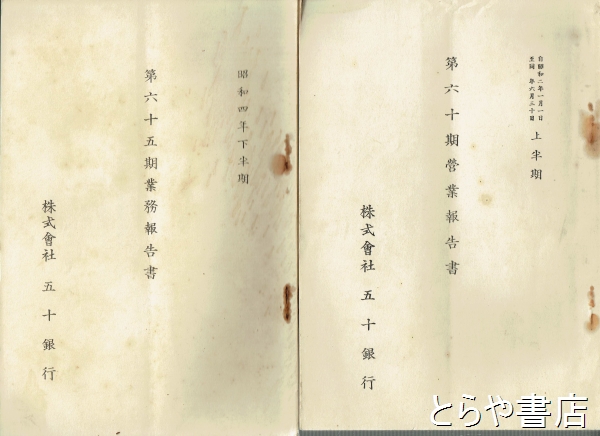 自昭和二年一月一日
至同年六月三十日
上半期
第六十期營業報告書
株式會社 五十銀行
昭和四年下半期
第六十五期業務報告書
株式會社 五十銀行
とらや書店